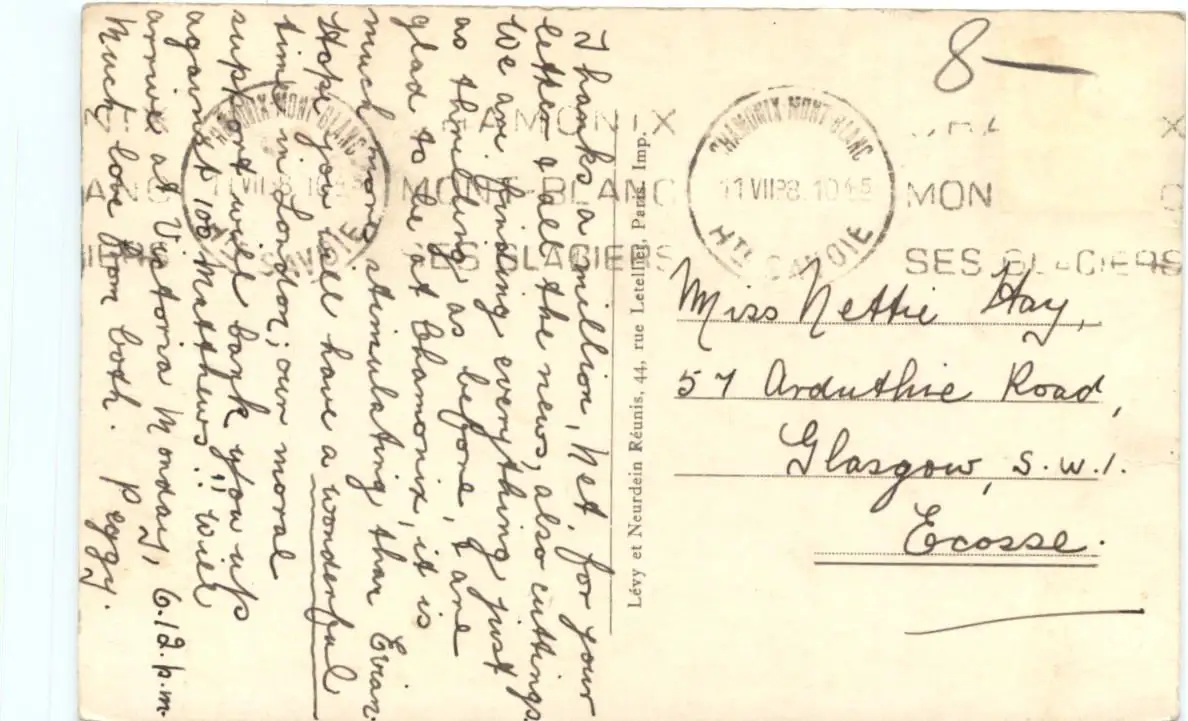 Thanks a million, Net, for your
letter & all the news, also cuttings.
We are finding everything just
as thrilling as before, & are
glad to be at Chamonix; it is
much more stimulating than Evian.
Hope you all have a wonderful
time in London; our moral
support will back you up
against 100 Matthews!! Will
arrive at Victoria Monday, 6.12 p.m.
Much love from both. Peggy.
Lévy et Neurdein Réunis, 44, rue Letellier, Paris. Imp.
8—
CHAMONIX-MONT-BLANC
10 45
HTE SAVOIE
CHAMONIX
MONT-BLANC
SES GLACIERS
CHAMONIX-MONT-BLANC
10 45
HTE SAVOIE
MON
SES GLACIERS
Miss Nettie Hay,
57 Arduthie Road,
Glasgow, S.W.1.
Ecosse.